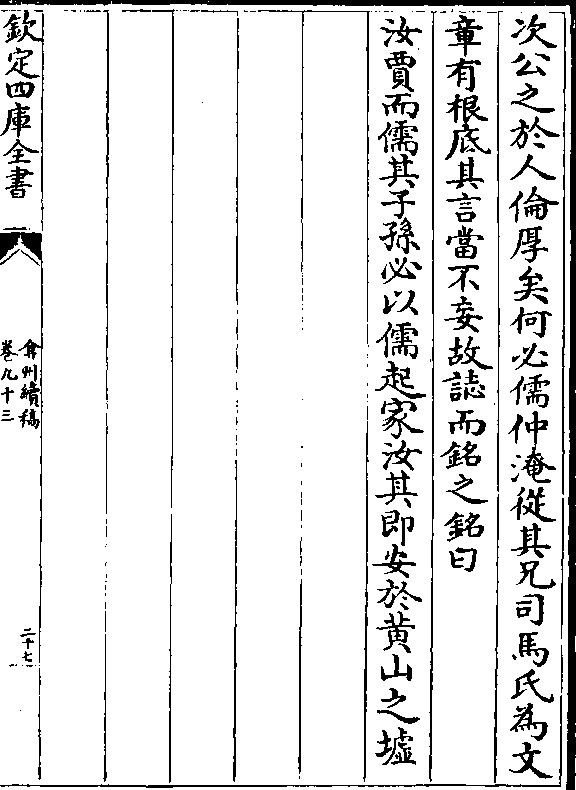 次公之於人倫厚矣何必儒仲淹從其兄司馬氏為文
章有根底其言當不妄故誌而銘之銘曰
汝賈而儒其子孫必以儒起家汝其即安於黄山之墟
欽定四庫全書
弇州續稿
卷九十三
二十七